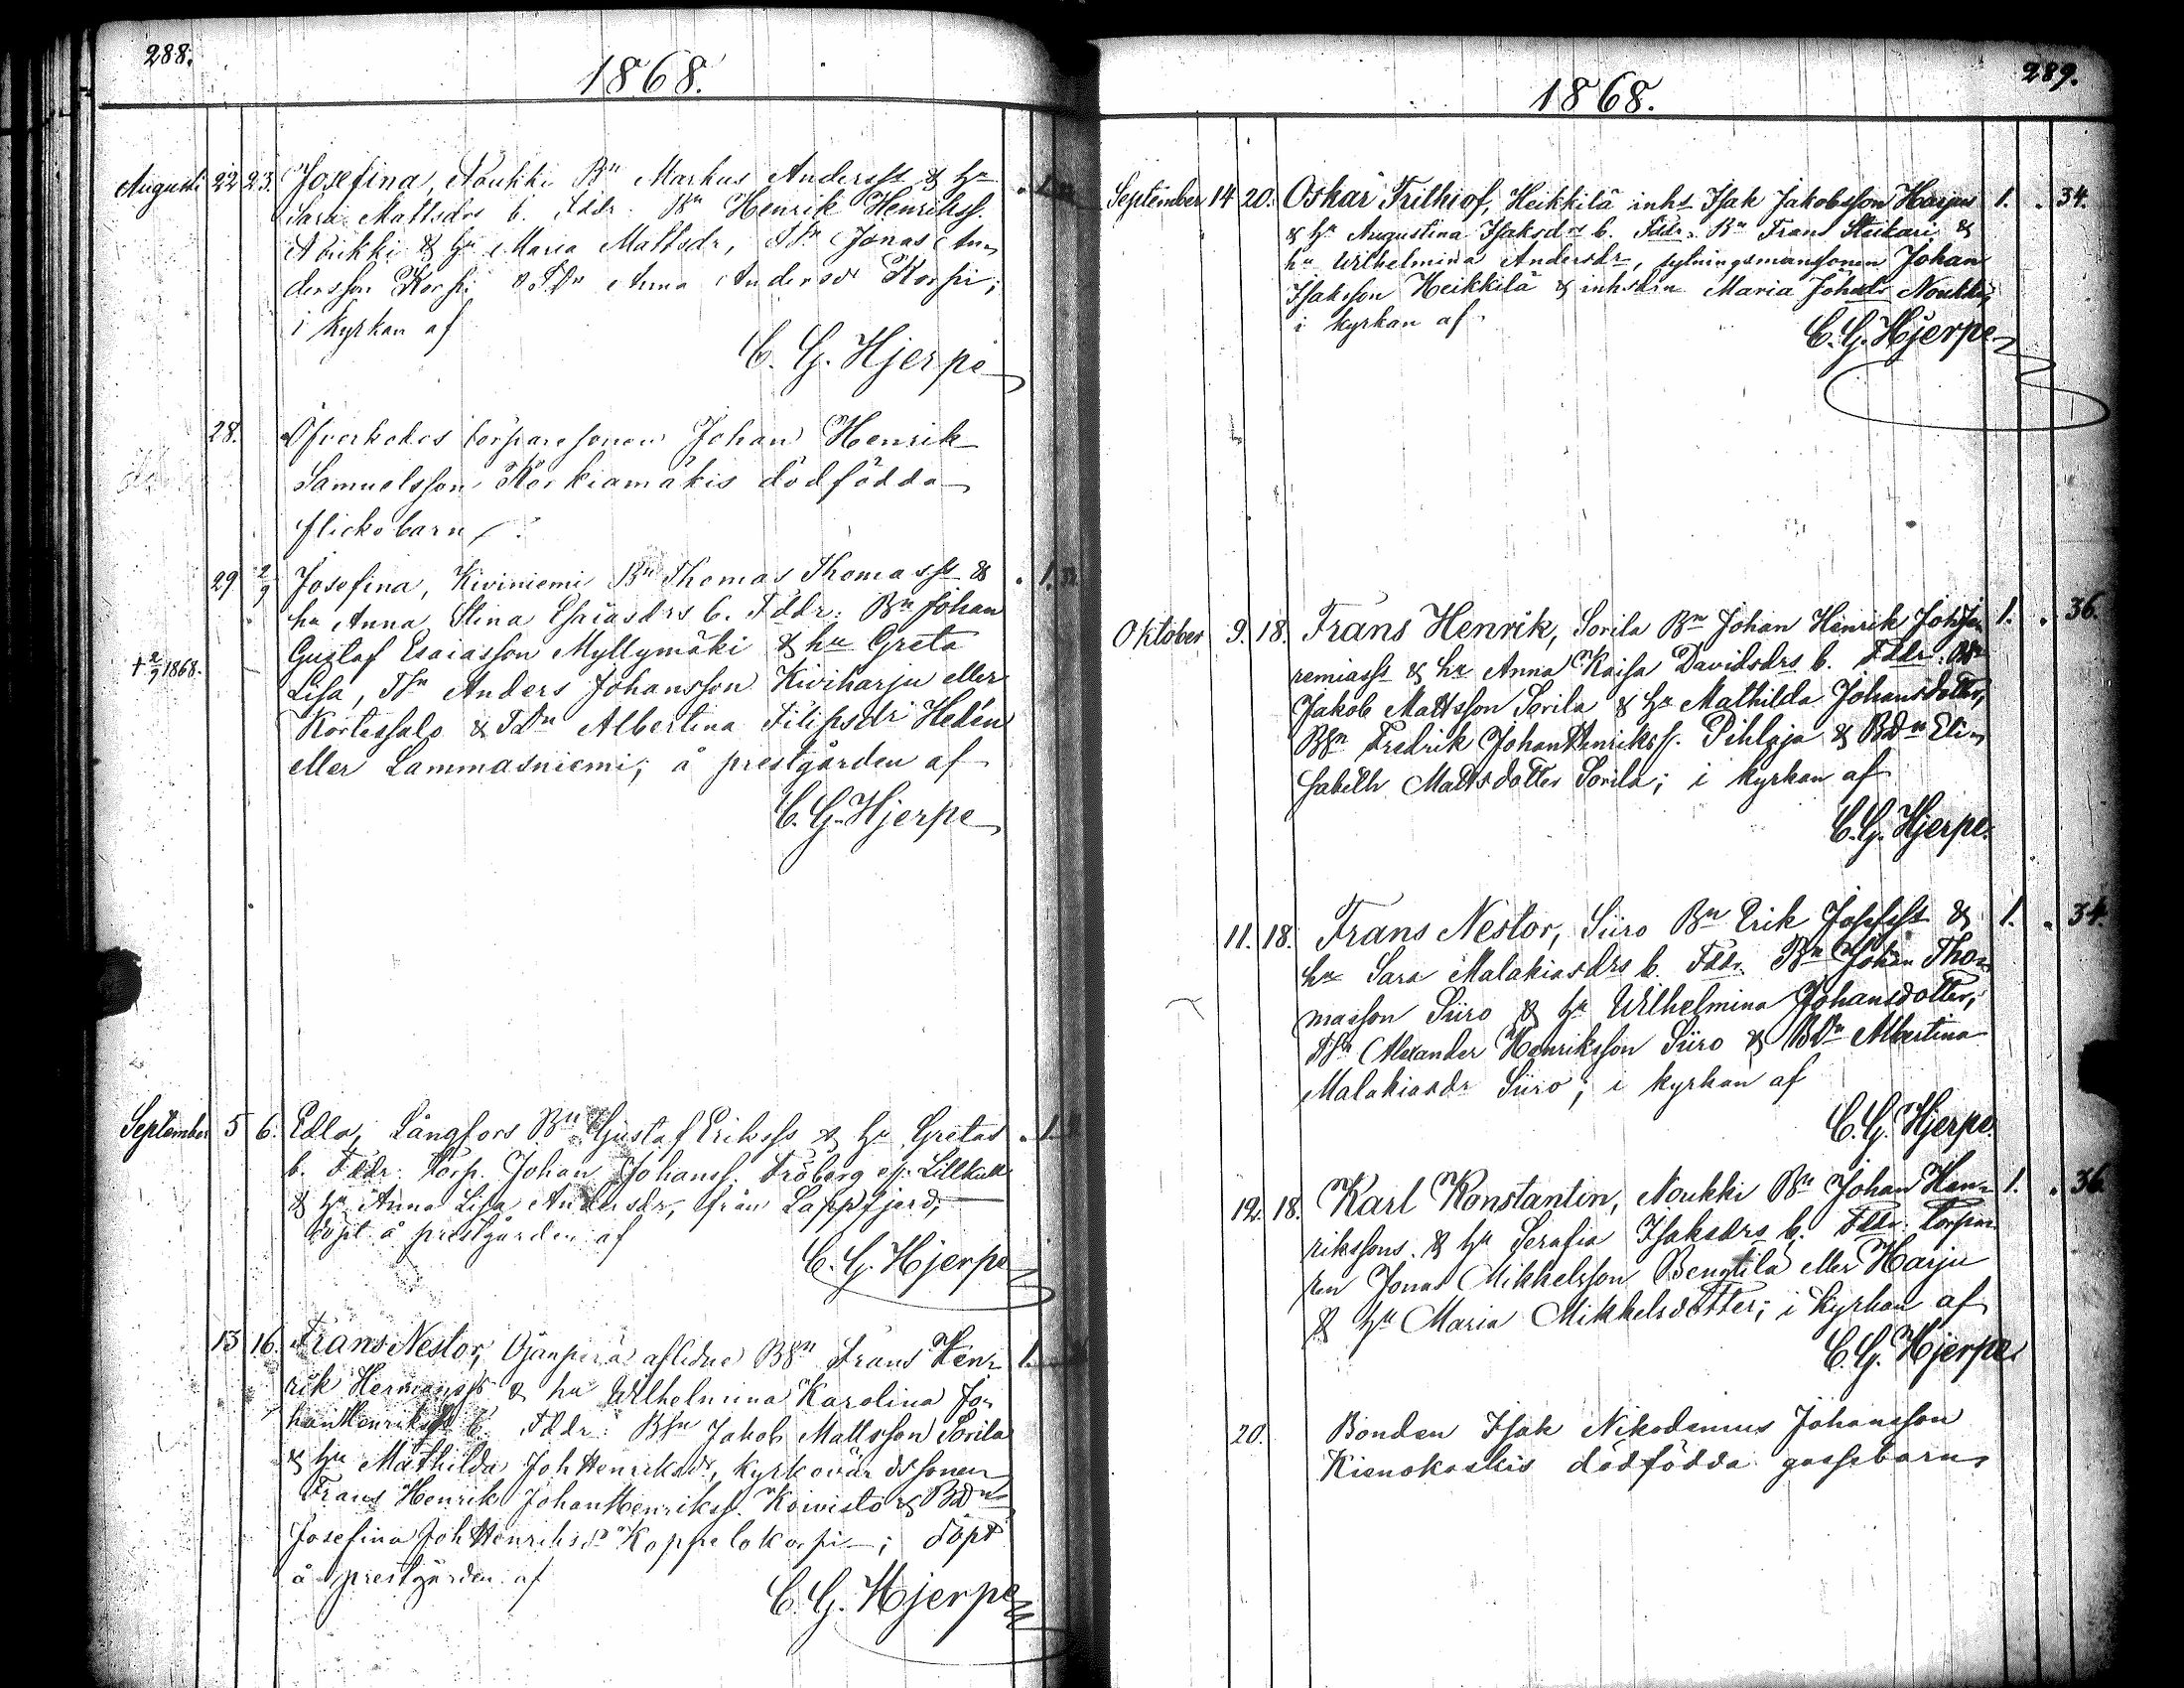 288.
1868.
Augusti 22 23. Josefina, Noukki Bn Markus Anderss & hu
Sara Mattsdrs b. Fddr: Bn Henrik Henrikss.
Noukki & hu Maria Mattsdr, Dn Jonas An-
dersson Korpi & Ddn Anna Andersdr Korpi;
i kyrkan af
C. G. Hjerpe
28. Öfverkodes torparesonen Johan Henrik
Samuelsson Korkiamäkis dödfödda
flickobarn.
29 2/9 Josefina, Kiviniemi Bn Thomas Thomass & . 1.
hu Anna Stina Esaiasdrs b. Fddr: Bn Johan
Gustaf Esaiasson Myllymäki & hu Greta
+ 2/9 1868.
Lisa, Tsn Anders Johansson Kiviharju eller
Kortessalo & Tdn Albertina Filipsdr Hedén
eller Lammasniemi; å prestgården af
C. G. Hjerpe
September 5 6. Edla, Långfors Bn Gustaf Erikss & hu Gretas . 1.
b. Fddr: Torp. Johan Johanss. Fröberg
& hu Anna Lisa Andersdr, från Lappfjerd,
döpt å prestgården af
C. G. Hjerpe
13 16. Frans Nestor, Ojanperä aflidne Bsn Frans Hen- 1.
rik Hermanss & hu Wilhelmina Karolina Jo-
hanHenriksdrs b. Fddr: Bsn Jakob Mattsson Sorila
& hu Mathilda JohHenriksdr, kyrkovärdssonen
Frans Henrik JohanHenrikss. Koivisto & Bdn
Josefina JohHenriksdr Koppelokorpi; döpt
å prestgården af
C. G. Hjerpe
289.
1868.
September 14 20. Oskar Frithiof, Heikkilä inhs Isak Jakobsson Harjus 1. . 34.
& hu Augustina Isaksdrs b. Fddr: Bn Frans Stukari &
hu Wilhelmina Andersdr, sytningsmanssonen Johan
Isaksson Heikkilä & inhsdrn Maria Johsdr Noukki;
i kyrkan af
C. G. Hjerpe
Oktober 9. 18. Frans Henrik, Sorila Bn Johan Henrik JohJe- 1. . 36.
remiass & hu Anna Kaisa Davidsdrs b. Fddr: Bsn
Jakob Mattsson Sorila & hu Mathilda Johansdotter,
Bsn Fredrik JohanHenrikss. Pihlaja & Bdn Eli-
sabeth Mattsdotter Sorila; i kyrkan af
C. G. Hjerpe.
11. 18. Frans Nestor, Siiro Bn Erik Josefss & 1. . 34.
hu Sara Malakiasdrs b. Fddr: Bn Johan Tho-
masson Siiro & hu Wilhelmina Johansdotter,
Dsn Alexander Henriksson Siiro & Bdn Albertina
Malakiasdr Siiro; i kyrkan af
C. G. Hjerpe.
12. 18. Karl Konstantin, Noukki Bn Johan Hen- 1. . 36
rikssons & hu Serafia Isaksdrs b. Fddr: Torpa-
ren Jonas Mikkelsson Bengtilä eller Harju
& hu Maria Mikkelsdotter; i kyrkan af
C. G. Hjerpe.
20. Bonden Isak Nikodemus Johansson
Kienokoskis dödfödda gossebarn